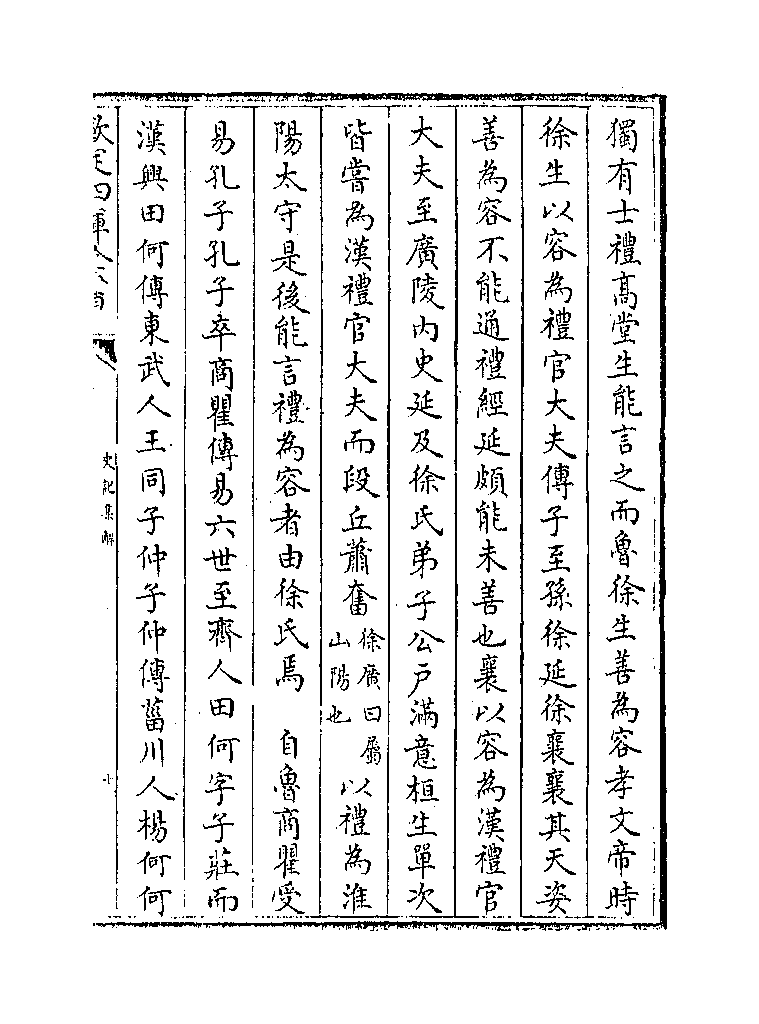 獨有士禮髙堂生能言之而魯徐生善為容孝文帝時
徐生以容為禮官大夫傳子至孫徐延徐襄襄其天姿
善為容不能通禮經延頗能未善也襄以容為漢禮官
大夫至廣陵内史延及徐氏弟子公户滿意桓生單次
皆嘗為漢禮官大夫而段丘蕭奮徐廣曰屬山陽也以禮為淮
陽太守是後能言禮為容者由徐氏焉　自魯商瞿受
易孔子孔子卒商瞿傳易六世至齊人田何字子莊而
漢興田何傳東武人王同子仲子仲傳菑川人楊何何
欽定四庫全書
史記集解
十